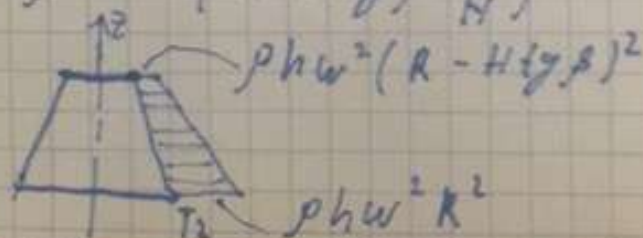 z
ρhω²(R - Htgβ)²
T₂
ρhω²R²